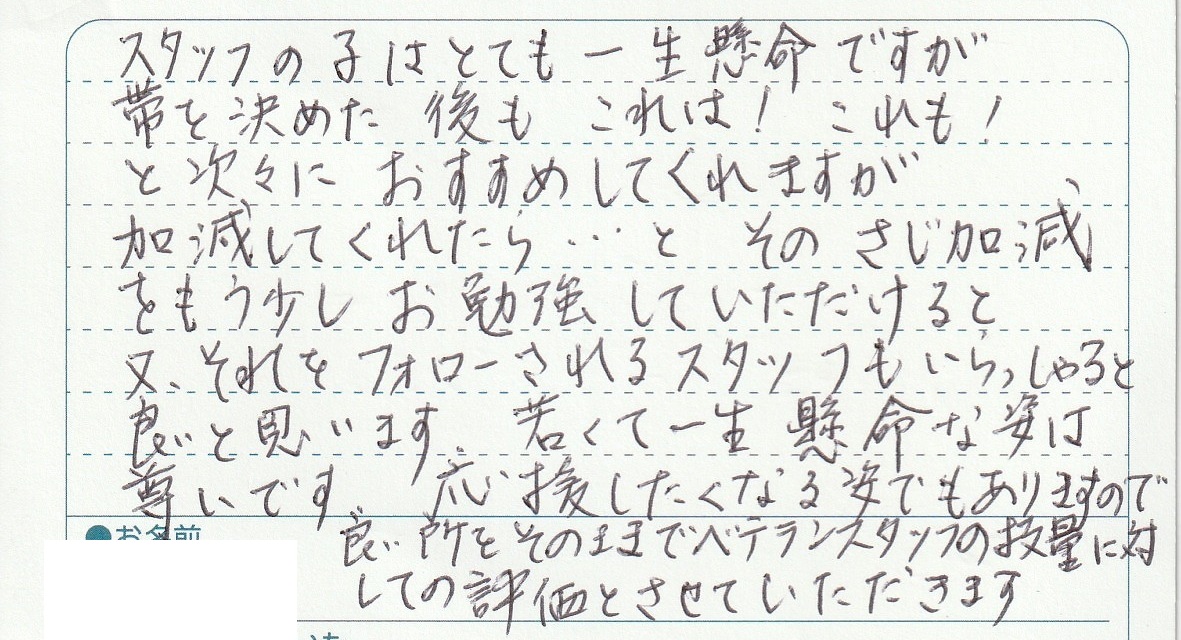 スタッフの子はとても一生懸命ですが
帯を決めた後もこれは！これも！
と次々におすすめしてくれますが
加減してくれたら…と そのさじ加減
をもう少しお勉強していただけると
又、それをフォローされるスタッフもいらっしゃると
良いと思います。若くて一生懸命な姿は
尊いです。応援したくなる姿でもありますので
●お名前
良い所をそのままでベテランスタッフの技量に対
しての評価とさせていただきます